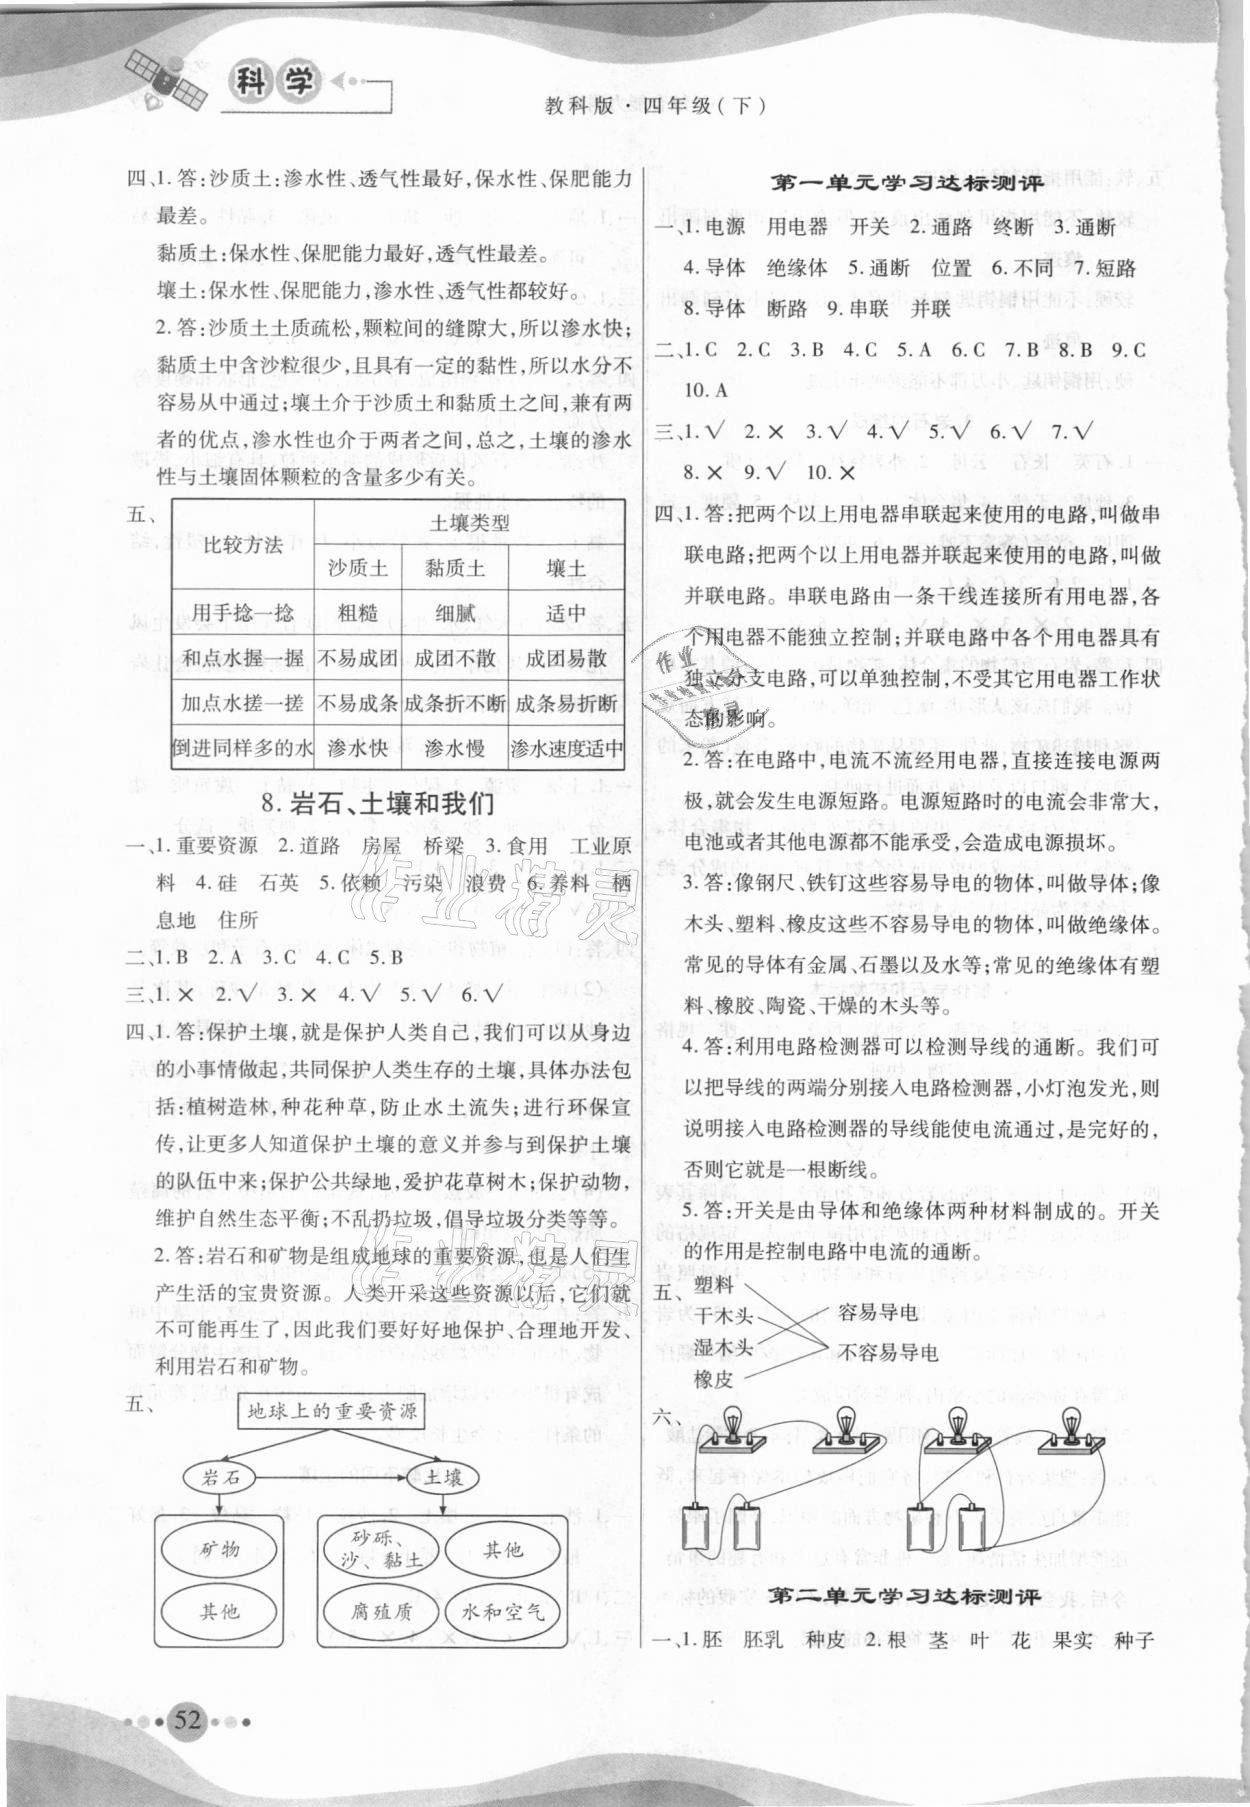 科学
教科版·四年级(下)
四、1.答:沙质土:渗水性、透气性最好,保水性、保肥能力
最差。
黏质土:保水性、保肥能力最好,透气性最差。
壤土:保水性、保肥能力,渗水性、透气性都较好。
2.答:沙质土土质疏松,颗粒间的缝隙大,所以渗水快;
黏质土中含沙粒很少,且具有一定的黏性,所以水分不
容易从中通过;壤土介于沙质土和黏质土之间,兼有两
者的优点,渗水性也介于两者之间,总之,土壤的渗水
性与土壤固体颗粒的含量多少有关。
五、
比较方法 土壤类型
沙质土 黏质土 壤土
用手捻一捻 粗糙 细腻 适中
和点水握一握 不易成团 成团不散 成团易散
加点水搓一搓 不易成条 成条折不断 成条易折断
倒进同样多的水 渗水快 渗水慢 渗水速度适中
8.岩石、土壤和我们
一、1.重要资源 2.道路 房屋 桥梁 3.食用 工业原
料 4.硅 石英 5.依赖 污染 浪费 6.养料 栖
息地 住所
二、1.B 2.A 3.C 4.C 5.B
三、1.× 2.√ 3.× 4.√ 5.√ 6.√
四、1.答:保护土壤,就是保护人类自己,我们可以从身边
的小事情做起,共同保护人类生存的土壤,具体办法包
括:植树造林,种花种草,防止水土流失;进行环保宣
传,让更多人知道保护土壤的意义并参与到保护土壤
的队伍中来;保护公共绿地,爱护花草树木;保护动物,
维护自然生态平衡;不乱扔垃圾,倡导垃圾分类等等。
2.答:岩石和矿物是组成地球的重要资源,也是人们生
产生活的宝贵资源。人类开采这些资源以后,它们就
不可能再生了,因此我们要好好地保护、合理地开发、
利用岩石和矿物。
五、
地球上的重要资源
岩石 土壤
矿物
其他
砂砾、
沙、黏土
其他
腐殖质 水和空气
52
第一单元学习达标测评
一、1.电源 用电器 开关 2.通路 终断 3.通断
4.导体 绝缘体 5.通断 位置 6.不同 7.短路
8.导体 断路 9.串联 并联
二、1.C 2.C 3.B 4.C 5.A 6.C 7.B 8.B 9.C
10.A
三、1.√ 2.× 3.√ 4.√ 5.√ 6.√ 7.√
8.× 9.√ 10.×
四、1.答:把两个以上用电器串联起来使用的电路,叫做串
联电路;把两个以上用电器并联起来使用的电路,叫做
并联电路。串联电路由一条干线连接所有用电器,各
个用电器不能独立控制;并联电路中各个用电器具有
独立分支电路,可以单独控制,不受其它用电器工作状
态的影响。
2.答:在电路中,电流不流经用电器,直接连接电源两
极,就会发生电源短路。电源短路时的电流会非常大,
电池或者其他电源都不能承受,会造成电源损坏。
3.答:像钢尺、铁钉这些容易导电的物体,叫做导体;像
木头、塑料、橡皮这些不容易导电的物体,叫做绝缘体。
常见的导体有金属、石墨以及水等;常见的绝缘体有塑
料、橡胶、陶瓷、干燥的木头等。
4.答:利用电路检测器可以检测导线的通断。我们可
以把导线的两端分别接入电路检测器,小灯泡发光,则
说明接入电路检测器的导线能使电流通过,是完好的,
否则它就是一根断线。
5.答:开关是由导体和绝缘体两种材料制成的。开关
的作用是控制电路中电流的通断。
五、
塑料
干木头
湿木头
橡皮
容易导电
不容易导电
六、
第二单元学习达标测评
一、1.胚 胚乳 种皮 2.根 茎 叶 花 果实 种子
作业精灵
作业精灵